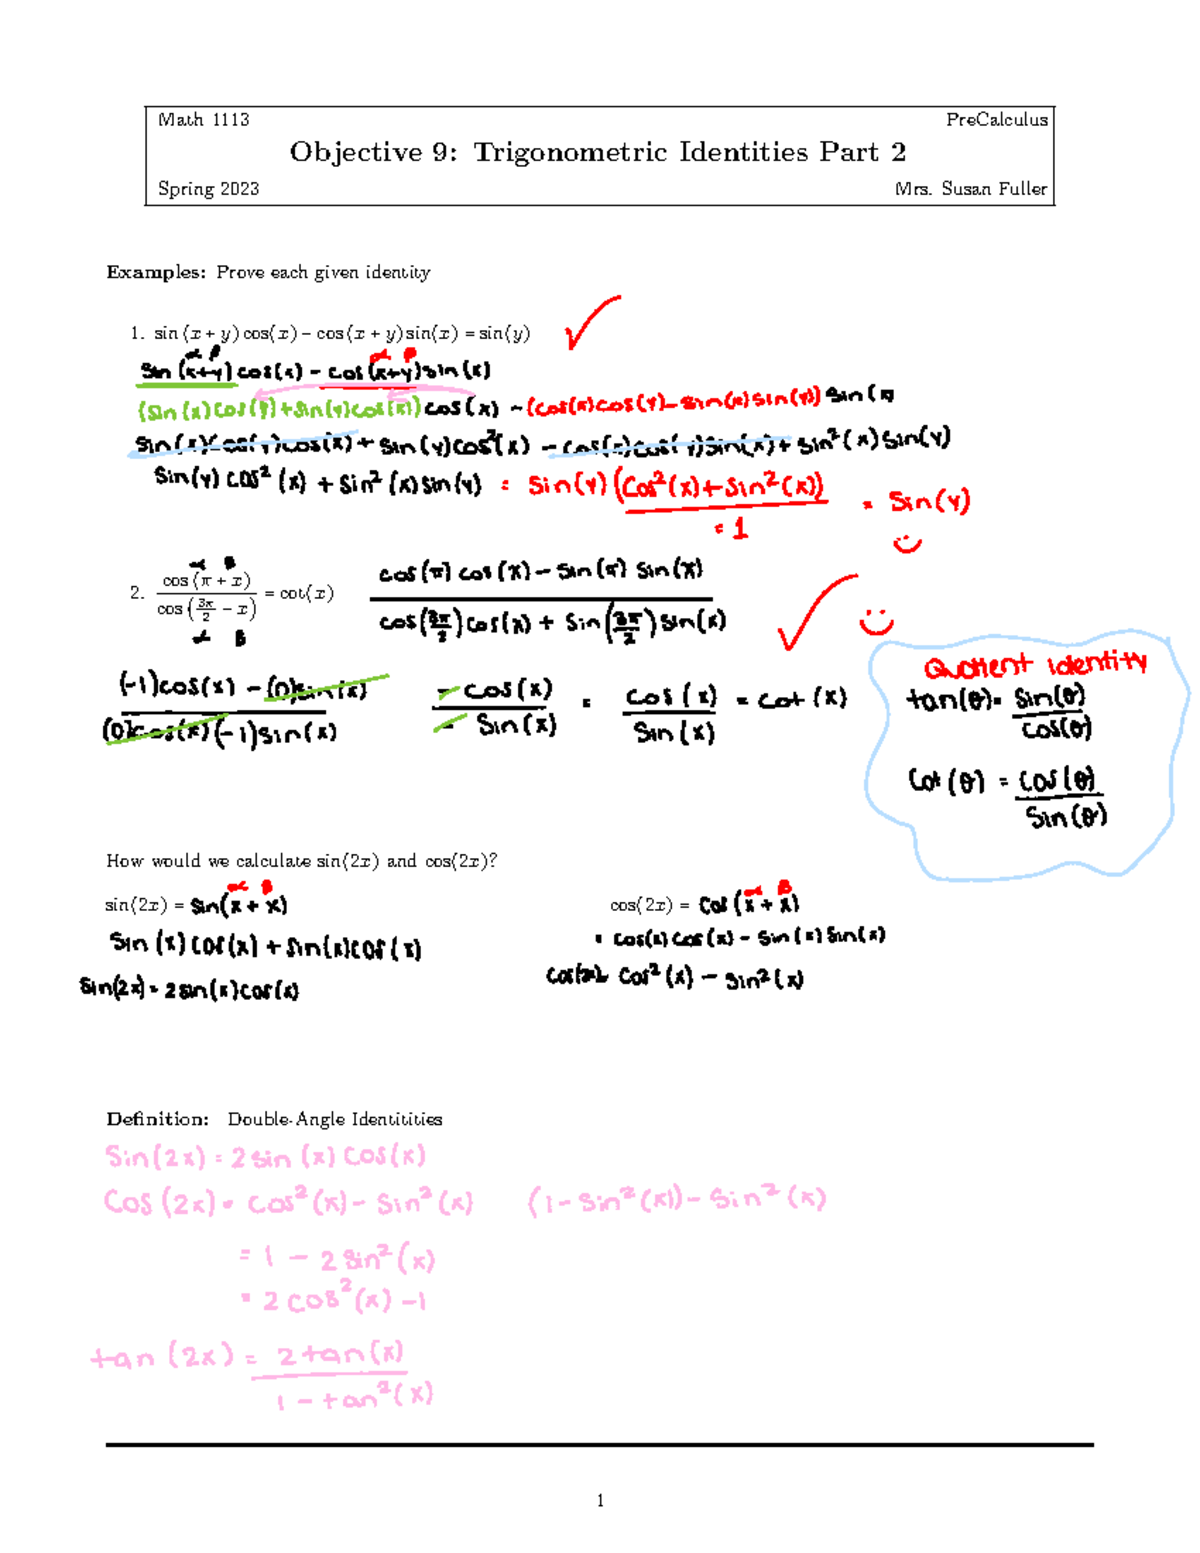 Math 1113 PreCalculus
Objective 9: Trigonometric Identities Part 2
Spring 2023 Mrs. Susan Fuller
Examples: Prove each given identity
1. sin(x + y)cos(x) − cos(x + y)sin(x) = sin(y)
α β α β
sin(x+y)cos(x) − cos(x+y)sin(x)
(sin(x)cos(y)+sin(y)cos(x))cos(x) − (cos(x)cos(y)−sin(x)sin(y))sin(x)
sin(x)cos(y)cos(x) + sin(y)cos²(x) − cos(x)cos(y)sin(x) + sin²(x)sin(y)
sin(y)cos²(x) + sin²(x)sin(y) = sin(y)(cos²(x)+sin²(x)) = sin(y)
= 1
α β
2. cos(π + x) / cos(3π/2 − x) = cot(x) cos(π)cos(x) − sin(π)sin(x) / cos(3π/2)cos(x) + sin(3π/2)sin(x)
α β
Quotient identity
(-1)cos(x) − (0)sin(x) / (0)cos(x)(-1)sin(x) − cos(x) / − sin(x) = cos(x) / sin(x) = cot(x)
tan(θ) = sin(θ) / cos(θ)
cot(θ) = cos(θ) / sin(θ)
How would we calculate sin(2x) and cos(2x)?
α β α β
sin(2x) = sin(x + x) cos(2x) = cos(x + x)
sin(x)cos(x) + sin(x)cos(x) = cos(x)cos(x) − sin(x)sin(x)
sin(2x) = 2sin(x)cos(x) cos(2x) = cos²(x) − sin²(x)
Definition: Double-Angle Identitities
Sin(2x) = 2sin(x)cos(x)
Cos(2x) = cos²(x) − sin²(x) (1 − sin²(x)) − sin²(x)
= 1 − 2sin²(x)
= 2cos²(x) −1
tan(2x) = 2tan(x) / 1 − tan²(x)
1